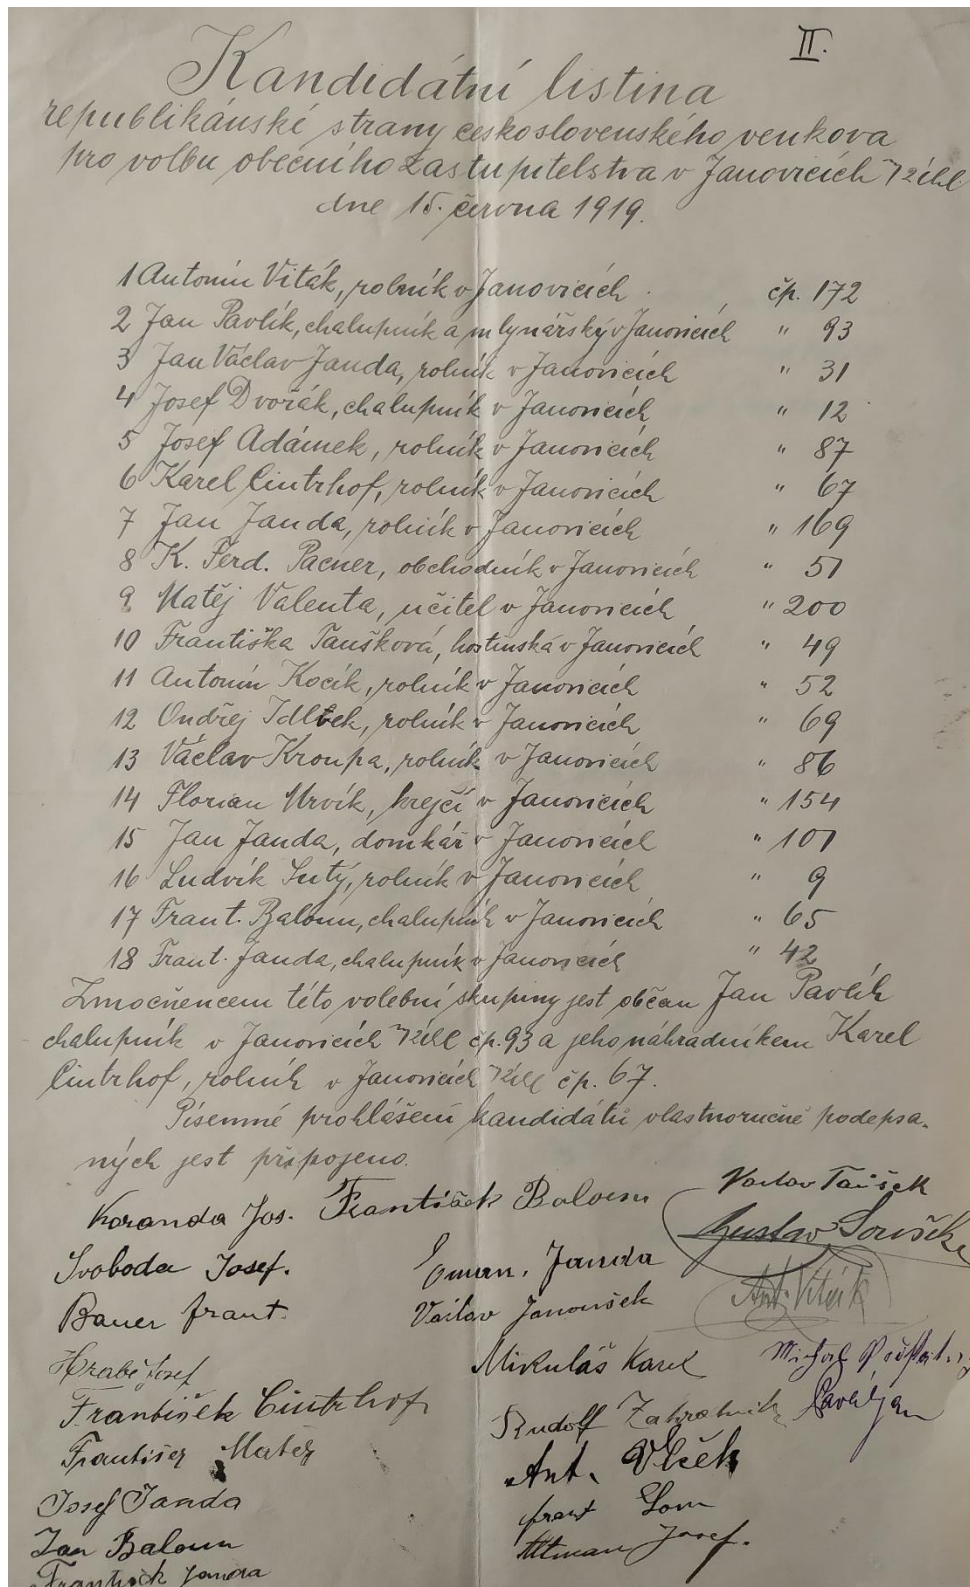 II.
Kandidátní listina
republikánské strany československého venkova
pro volbu obecního zastupitelstva v Janovicích
dne 15. června 1919.
1 Antonín Viták, rolník v Janovicích čp. 172
2 Jan Pavlík, chalupník a mlynářský v Janovicích " 93
3 Jan Václav Janda, rolník v Janovicích " 31
4 Josef Dvořák, chalupník v Janovicích " 12
5 Josef Adámek, rolník v Janovicích " 87
6 Karel Cintrhof, rolník v Janovicích " 67
7 Jan Janda, rolník v Janovicích " 169
8 K. Ferd. Pacner, obchodník v Janovicích " 51
9 Matěj Valenta, učitel v Janovicích " 200
10 Františka Taušková, hostinská v Janovicích " 49
11 Antonín Kocík, rolník v Janovicích " 52
12 Ondřej v Janovicích " 69
13 Václav Kroupa, rolník v Janovicích " 86
14 Florian Mrvík, krejčí v Janovicích " 154
15 Jan Janda, domkář v Janovicích " 101
16 Ludvík rolník v Janovicích " 9
17 Frant. Baloun, chalupník v Janovicích " 65
18 Frant. Janda, chalupník v Janovicích " 42
Zmocněncem této volební skupiny jest občan Jan Pavlík
chalupník v Janovicích čp. 93 a jeho náhradníkem Karel
Cintrhof, rolník v Janovicích čp. 67.
Písemné prohlášení kandidátů vlastnoručně podepsa-
ných jest připojeno.
Koranda Jos. František Baloun Václav Taušek
Svoboda Josef. Eman. Janda Gustav
Bauer frant. Václav Janoušek Ant. Viták
Hrabě Josef Mikuláš Karel Michal
František Cintrhof Rudolf Zahradník Pavlík Jan
František Matěj Ant. Vlček
Josef Janda frant Lom
Jan Baloun Altman Josef.
František Janda